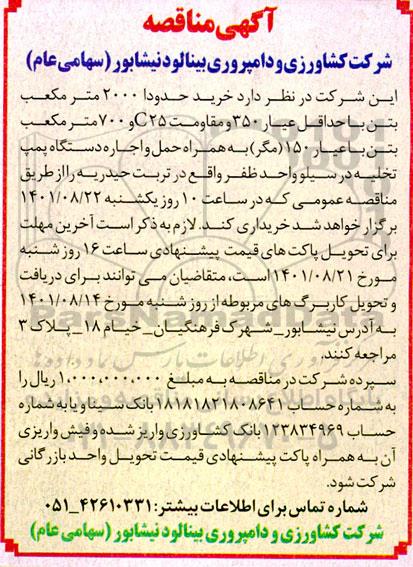 آگهی مناقصه
شرکت کشاورزی و دامپروری بینالود نیشابور (سهامی عام)
این شرکت در نظر دارد خرید حدودا ۲۰۰۰ متر مکعب
بتن با حداقل عیار ۳۵۰ و مقاومت C۲۵ و ۷۰۰ متر مکعب
بتن با عیار ۱۵۰ (مگر) به همراه حمل و اجاره دستگاه پمپ
تخلیه در سیلو واحد ظفر واقع در تربت حیدریه را از طریق
مناقصه عمومی که در ساعت ۱۰ روز یکشنبه ۱۴۰۱/۰۸/۲۲
برگزار خواهد شد خریداری کند. لازم به ذکر است آخرین مهلت
برای تحویل پاکت های قیمت پیشنهادی ساعت ۱۶ روز شنبه
مورخ ۱۴۰۱/۰۸/۲۱ است، متقاضیان می توانند برای دریافت
و تحویل کاربرگ های مربوطه از روز شنبه مورخ ۱۴۰۱/۰۸/۱۴
به آدرس نیشابور_ شهرک فرهنگیان_ خیام ۱۸_ پلاک ۳
مراجعه کنند.
سپرده شرکت در مناقصه به مبلغ ۱,۰۰۰,۰۰۰,۰۰۰ ریال را
به شماره حساب ۱۸۱۸۱۸۲۱۸۰۸۶۴۱ بانک سینا و یا به شماره
حساب ۱۲۳۸۳۴۹۶۹ بانک کشاورزی واریز شده و فیش واریزی
آن به همراه پاکت پیشنهادی قیمت تحویل واحد بازرگانی
شرکت شود.
شماره تماس برای اطلاعات بیشتر: ۴۲۶۱۰۳۳۱_۰۵۱
شرکت کشاورزی و دامپروری بینالود نیشابور (سهامی عام)